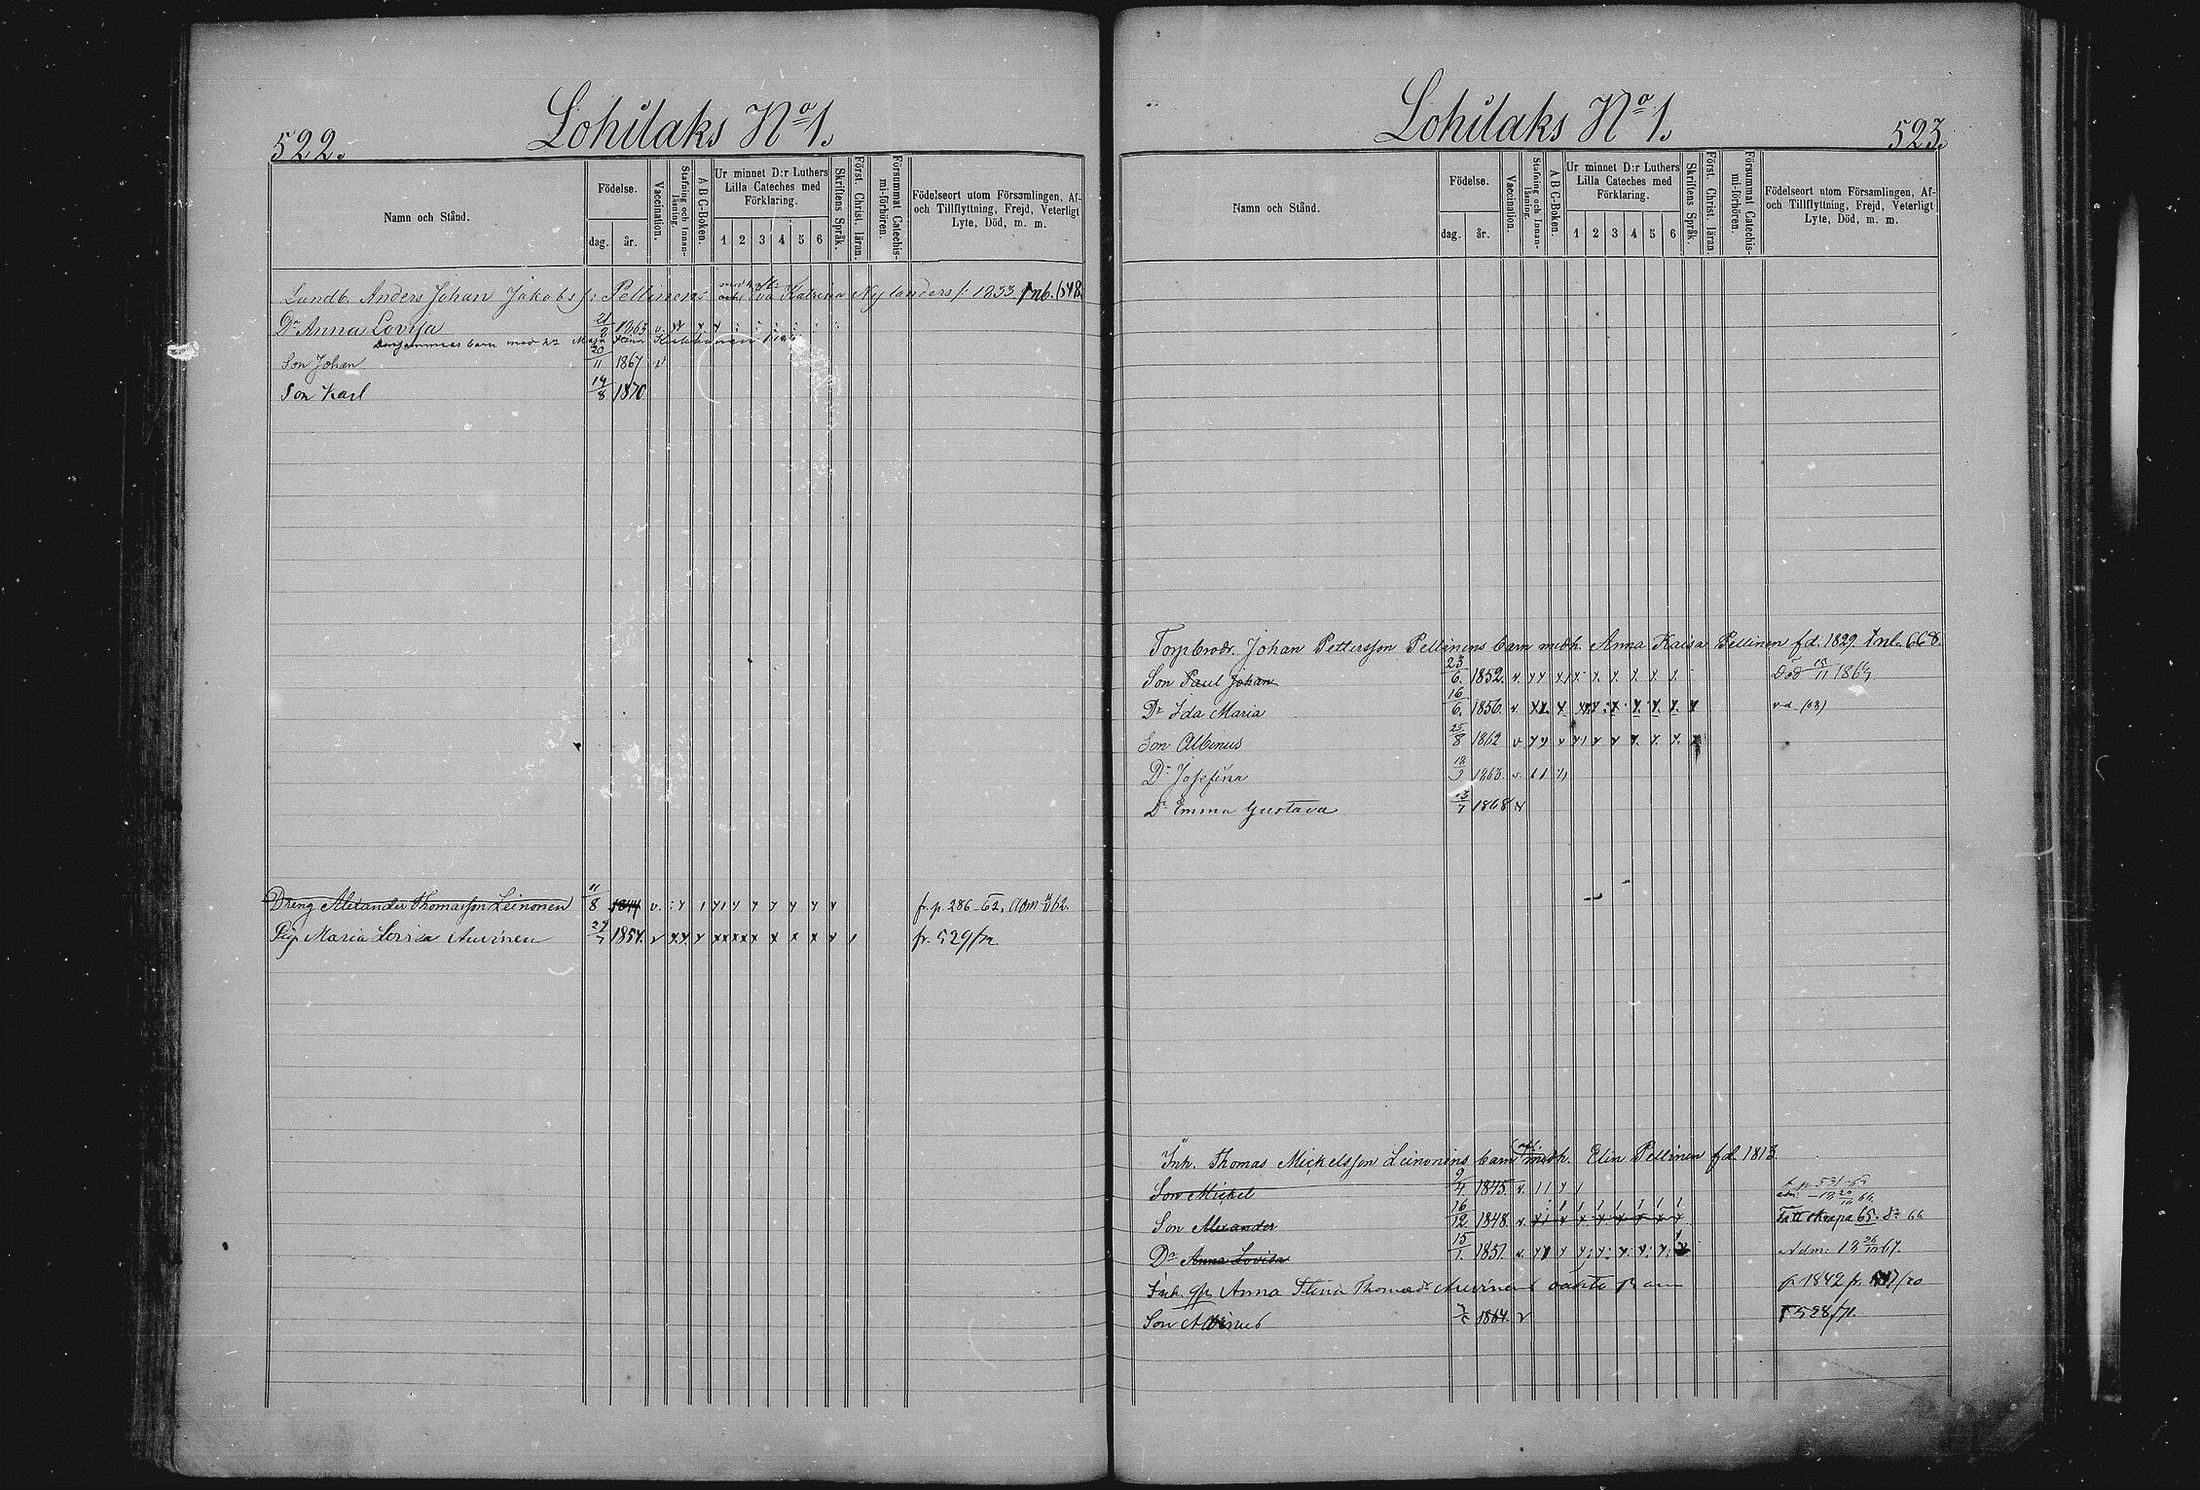 522.
Lohilaks No 1.
Namn och Stånd.
Födelse.
dag.
år.
Vaccination.
Stafning och Innan-läsning.
A B C-Boken.
Ur minnet D:r Luthers Lilla Cateches med Förklaring.
1 2 3 4 5 6
Skriftens Språk.
Först. Christ. läran.
Försummat Catechis-mi-förhören.
Födelseort utom Församlingen, Af- och Tillflyttning, Frejd, Veterligt Lyte, Död, m. m.
Anders Johan Jakobs Pellinens Eva Katrina Nylanders f. 1833
Dr Anna Lovisa 21/9 1865 v.
barn med
Son Johan 20/11 1867 v
Son Karl 14/8 1870
Dreng Alexander Thomasson Leinonen 11/8 1844 v. fr. p. 286-62.
Pig. Maria Lovisa Auvinen 1854. v fr. 529/72.
523.
Lohilaks No 1.
Namn och Stånd.
Födelse.
dag.
år.
Vaccination.
Stafning och Innan-läsning.
A B C-Boken.
Ur minnet D:r Luthers Lilla Cateches med Förklaring.
1 2 3 4 5 6
Skriftens Språk.
Först. Christ. läran.
Försummat Catechis-mi-förhören.
Födelseort utom Församlingen, Af- och Tillflyttning, Frejd, Veterligt Lyte, Död, m. m.
Johan Pettersson Pellinens barn medh. Anna Kaisa Pellinen fd. 1829. 668.
Son Paul Johan 23/6. 1852. v. Död
Dr Ida Maria 16/6. 1856. v.
Son Albinus 25/8 1862 v
Dr Josefina 1863. v.
Dr Emma Gustava 1868
Inh. Thomas Mickelsson Leinonens barn medh. Elin Pellinen fd 1813
Son Mickel 9/4. 1845. v.
Son Alexander 16/12. 1848. v. 65.
Dr Anna Lovisa 15/1. 1851. v. Adm: 67.
Inh. Anna Stina Thomasdr Auvinens barn f. 1842
Son Albinus 1864. v 528/71.